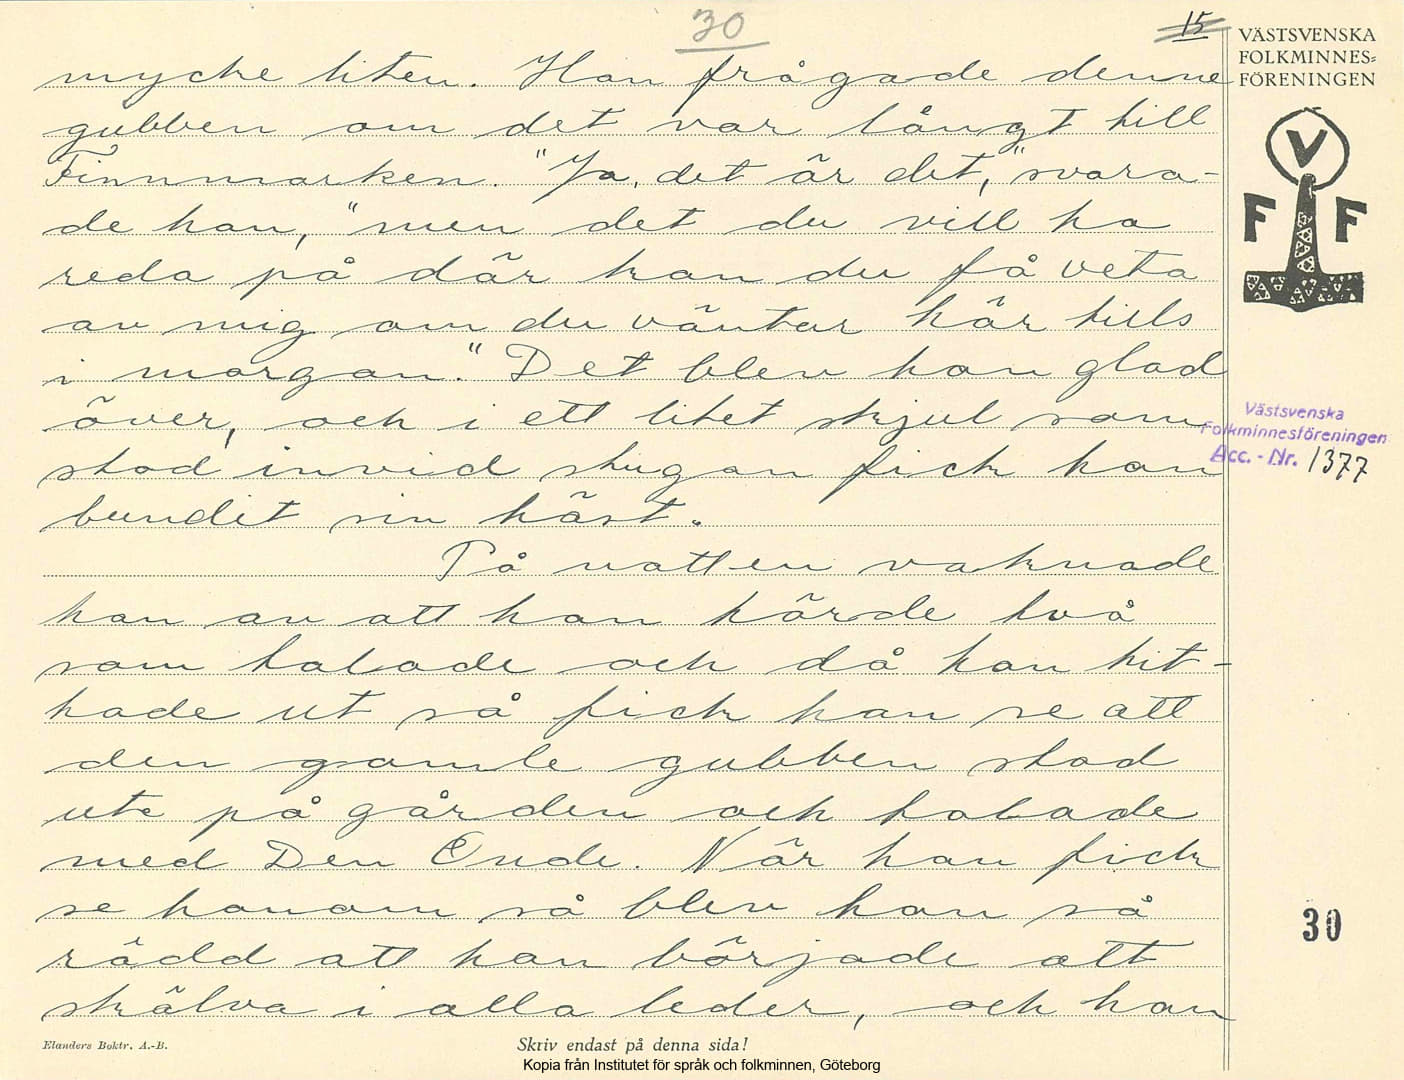 30
15
VÄSTSVENSKA
FOLKMINNES=
FÖRENINGEN
V
F F
mycke liten. Han frågade denne
gubben om det var långt till
Finnmarken. "Ja, det är det," svara-
de han, "men det du vill ha
reda på där kan du få veta
av mig om du väntar här tills
i morgon." Det blev han glad
över, och i ett litet skjul som
stod invid stugan fick han
bundit sin häst.
På natten vaknade
han av att han hörde två
som talade och då han tit-
tade ut så fick han se att
den gamle gubben stod
ute på gården och talade
med Den Onde. När han fick
se honom så blev han så
rädd att han började att
skälva i alla leder, och han
Västsvenska
Folkminnesföreningen
Acc. - Nr. 1377
30
Elanders Boktr. A.-B.
Skriv endast på denna sida!
Kopia från Institutet för språk och folkminnen, Göteborg